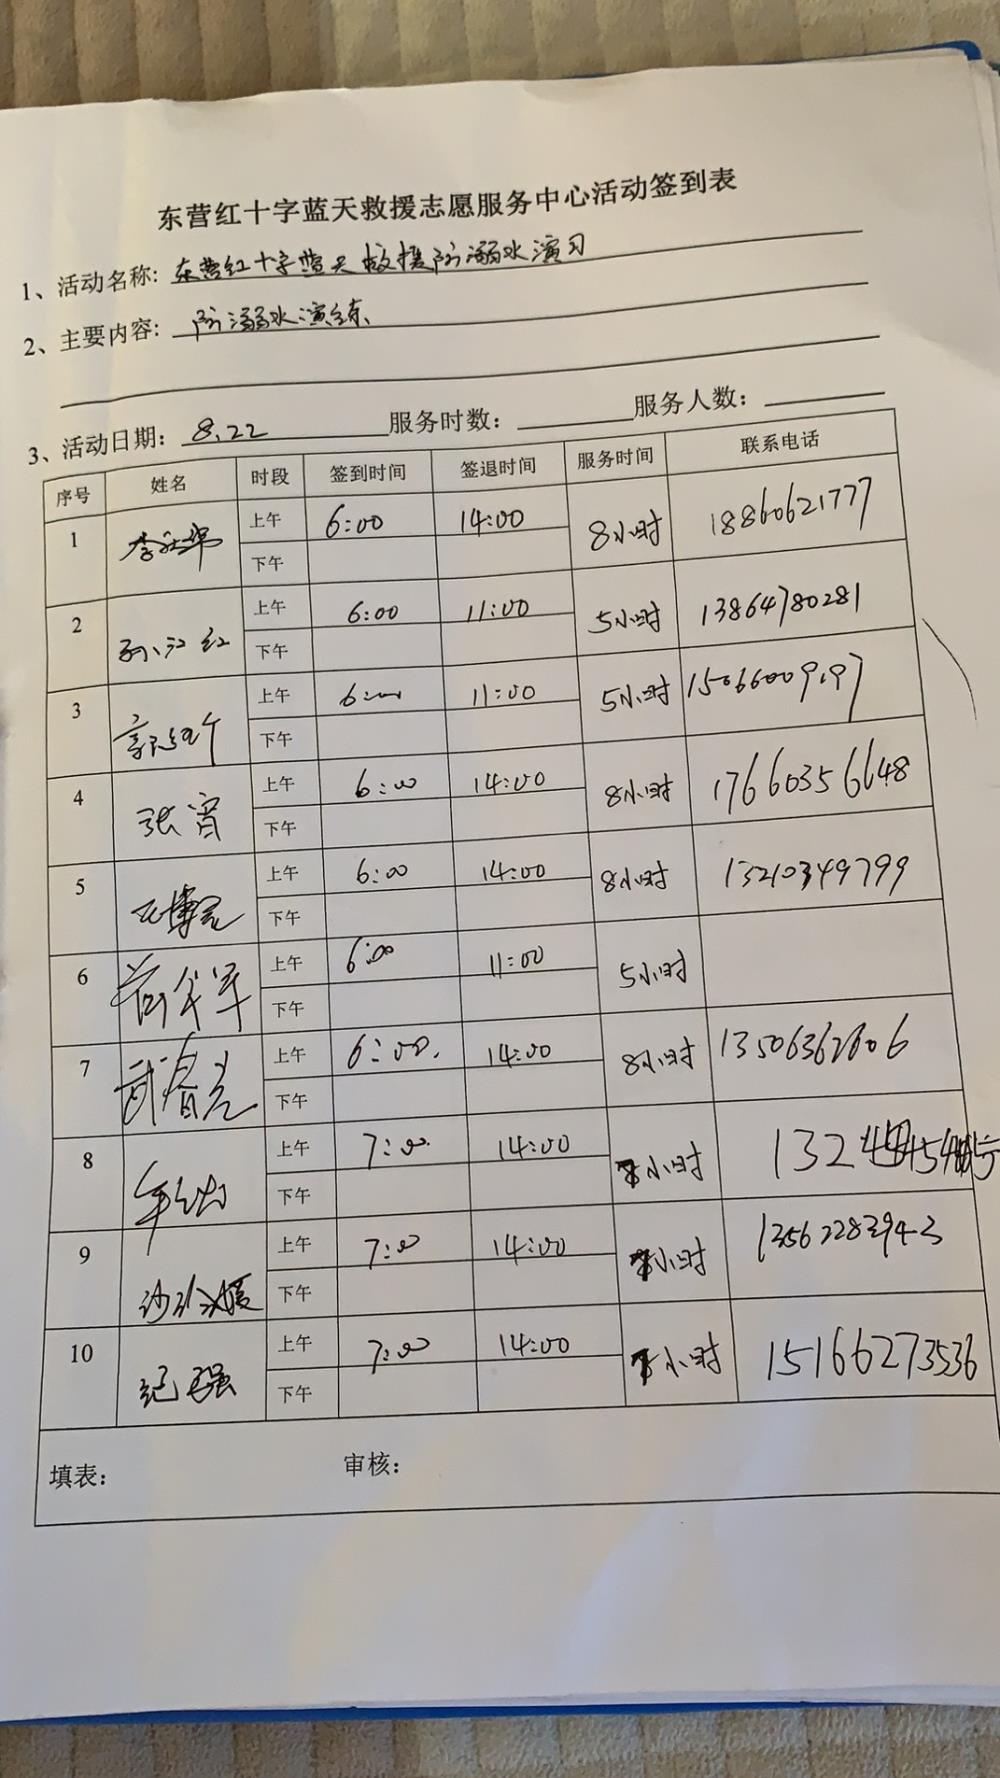 东营红十字蓝天救援志愿服务中心活动签到表
1、活动名称: 东营红十字蓝天救援防溺水演习
2、主要内容: 防溺水演练
3、活动日期: 8.22 服务时数: 服务人数:
序号 姓名 时段 签到时间 签退时间 服务时间 联系电话
1 上午 6:00 14:00 8小时 18860621777
下午
2 孙江红 上午 6:00 11:00 5小时 13864780281
下午
3 上午 6:00 11:00 5小时 15066009197
下午
4 张宵 上午 6:00 14:00 8小时 17660356648
下午
5 上午 6:00 14:00 8小时 13210349799
下午
6 上午 6:00 11:00 5小时
下午
7 武春光 上午 6:00. 14:00 8小时 13506362606
下午
8 上午 7:00. 14:00 小时
下午
9 上午 7:00 14:00 小时 13562283943
下午
10 纪强 上午 7:00 14:00 小时 15166273536
下午
填表: 审核: